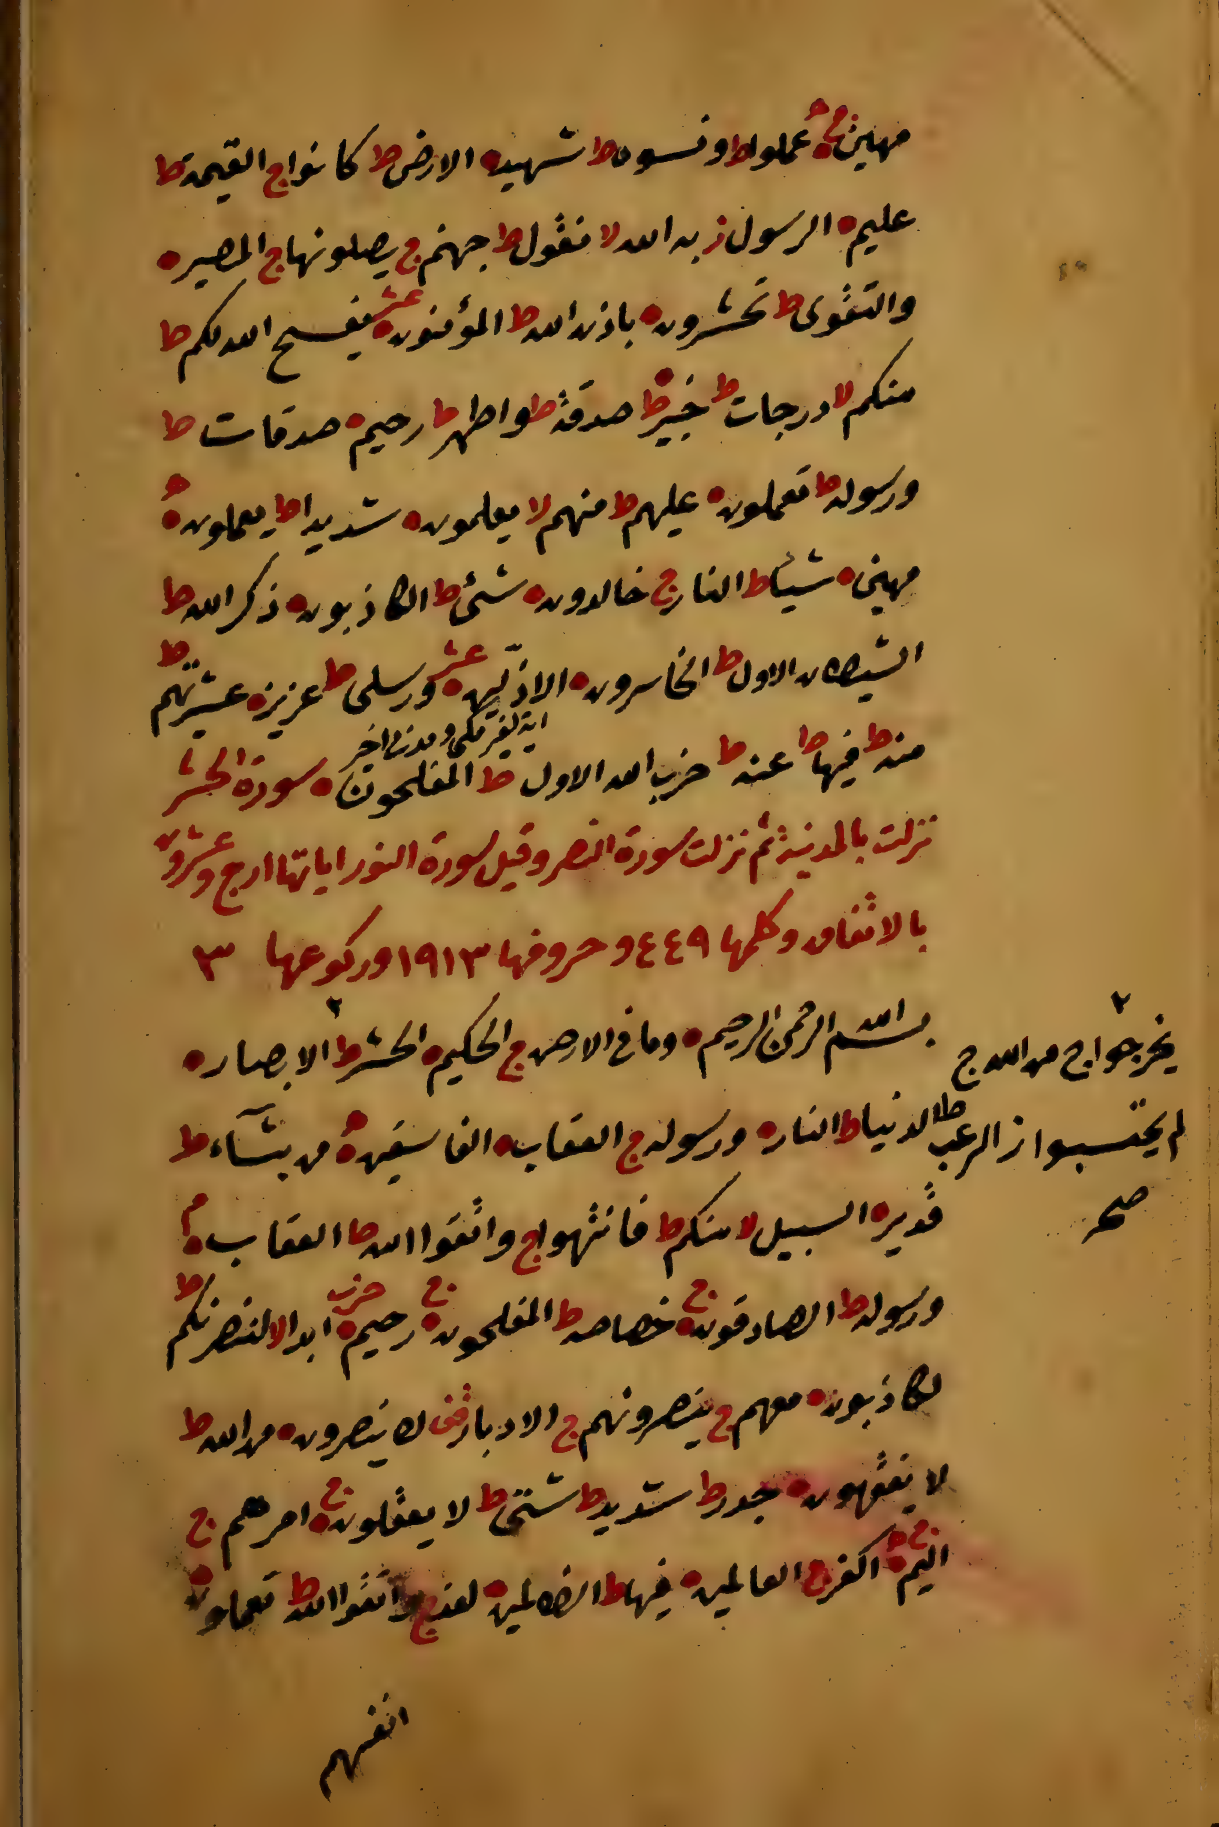 مهين ه ج عملوا ط ونسوه ط شهيد ه الارض ط كانوا ج القيمة ط
عليم ه الرسول ز به الله لا نقول ط جهنم ج يصلونها ج المصير ه
والتقوى ط تحشرون ه باذن الله ط المؤمنون ه عشر يفسح الله لكم ط
منكم لا درجات ط خبير ه صدقة ط واطهر ط رحيم ه صدقات ط
ورسوله ط تعملون ه عليهم ط منهم لا يعلمون ه شديدا ط يعملون ه
مهين ه شيئا ط النار ج خالدون ه شئ ط الكاذبون ه ذكر الله ط
الشيطان الاول ط الخاسرون ه الاذلين ه عشر ورسلى ط عزيز ه عشيرتهم ط
اية لغير مكى ومدنى اخير
منه ط فيها ط عنه ط حزب الله الاول ط المفلحون ه سورة الحشر
نزلت بالمدينة ثم نزلت سورة النصر وقيل سورة النور اياتها اربع وعشرون
بالاتفاق وكلمها ٤٤٩ وحروفها ١٩١٣ وركوعها ٣
بسم الله الرحمن الرحيم ه وما فى الارض ج الحكيم ه الحشر ط ٢ الابصار ه
٢
يخرجوا ج من الله ج
لم يحتسبوا ز الرعب
صح
الدنيا ط النار ه ورسوله ج العقاب ه الفاسقين ه من يشاء ط
قدير ه السبيل لا منكم ط فانتهوا ج واتقوا الله ط العقاب ه م
ورسوله ط الصادقون ه ج خصاصه ط المفلحون ه ج رحيم ه حزب ابدا لا لننصرنكم ط
لكاذبون ه معهم ج ينصرونهم ج الادبار قف لا ينصرون ه من الله ط
لا يفقهون ه جدر ط شديد ط شتى ط لا يعقلون ه ج امرهم ج
اليم ه ج اكفر ج العالمين ه فيها ط الظالمين ه لغد ج واتقوا الله ط تعملون ه
انفسهم